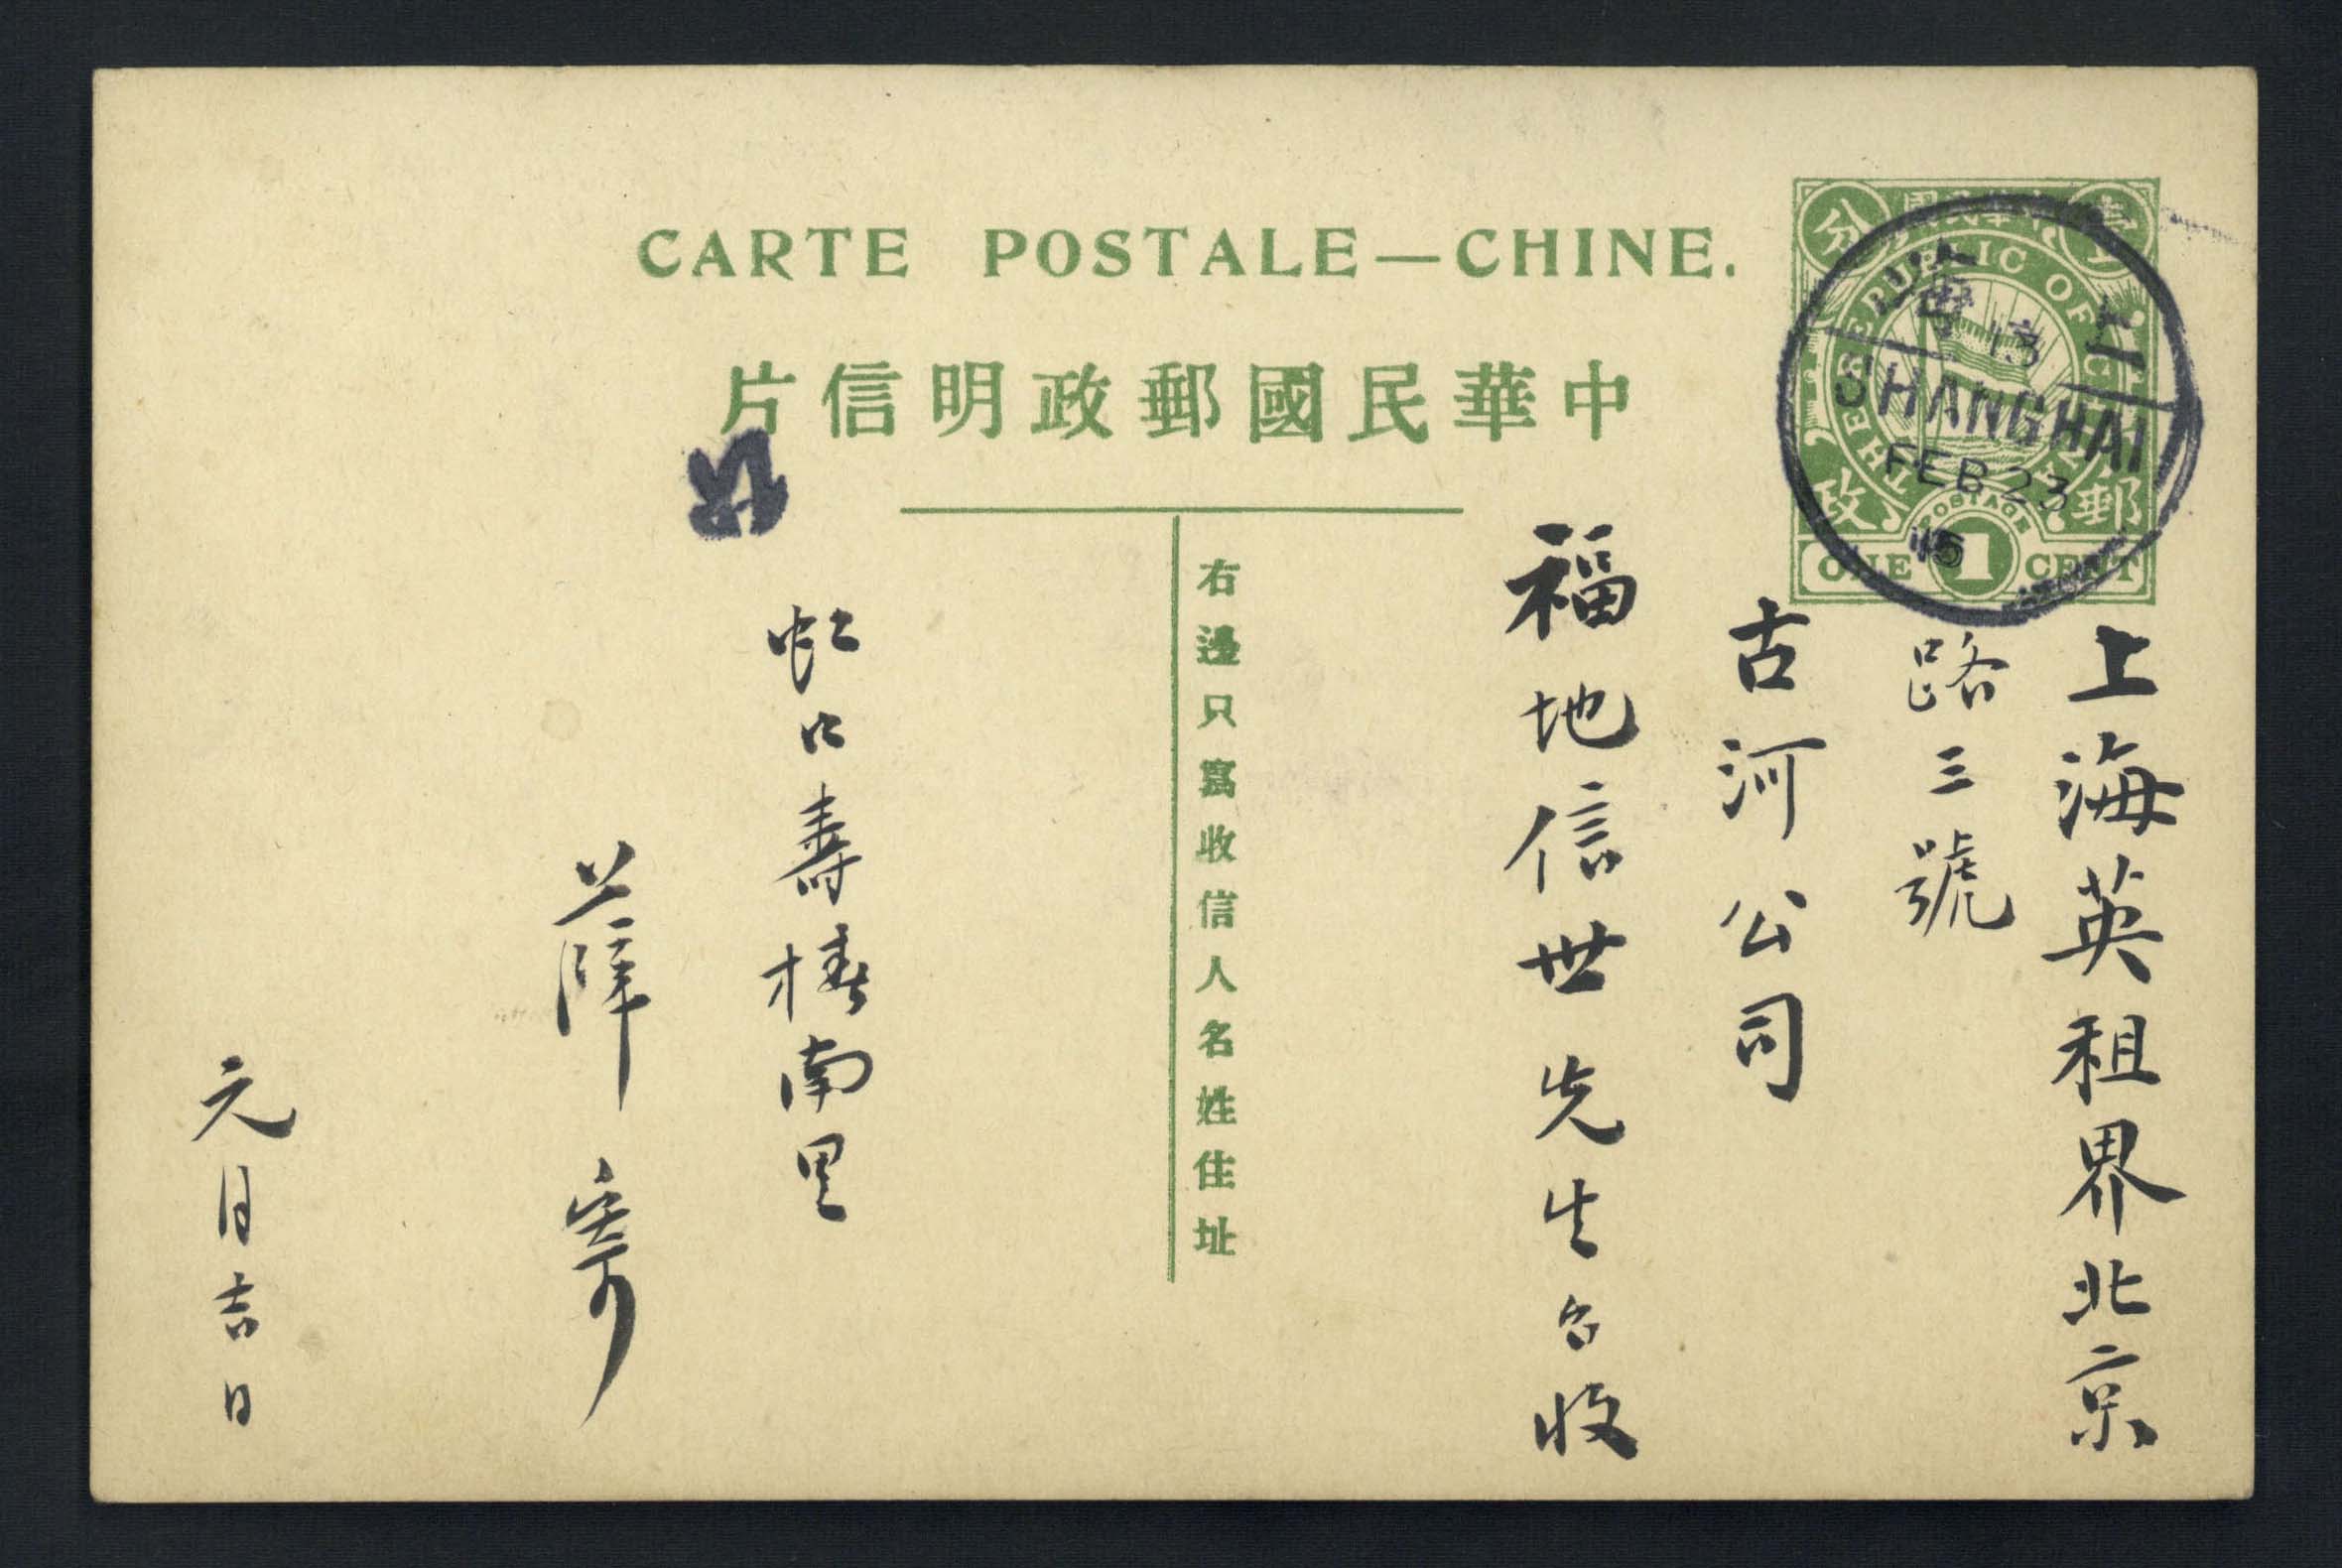 CARTE POSTALE—CHINE.
中華民國郵政明信片
右邊只寫收信人名姓住址
中華民國
壹分
郵政
THE REPUBLIC OF
POSTAGE
ONE 1 CENT
上海
13
SHANGHAI
FEB 23
15
上海英租界北京
路三號
古河公司
福地信世先生台收
虹口壽椿南里
薛寄
元月吉日